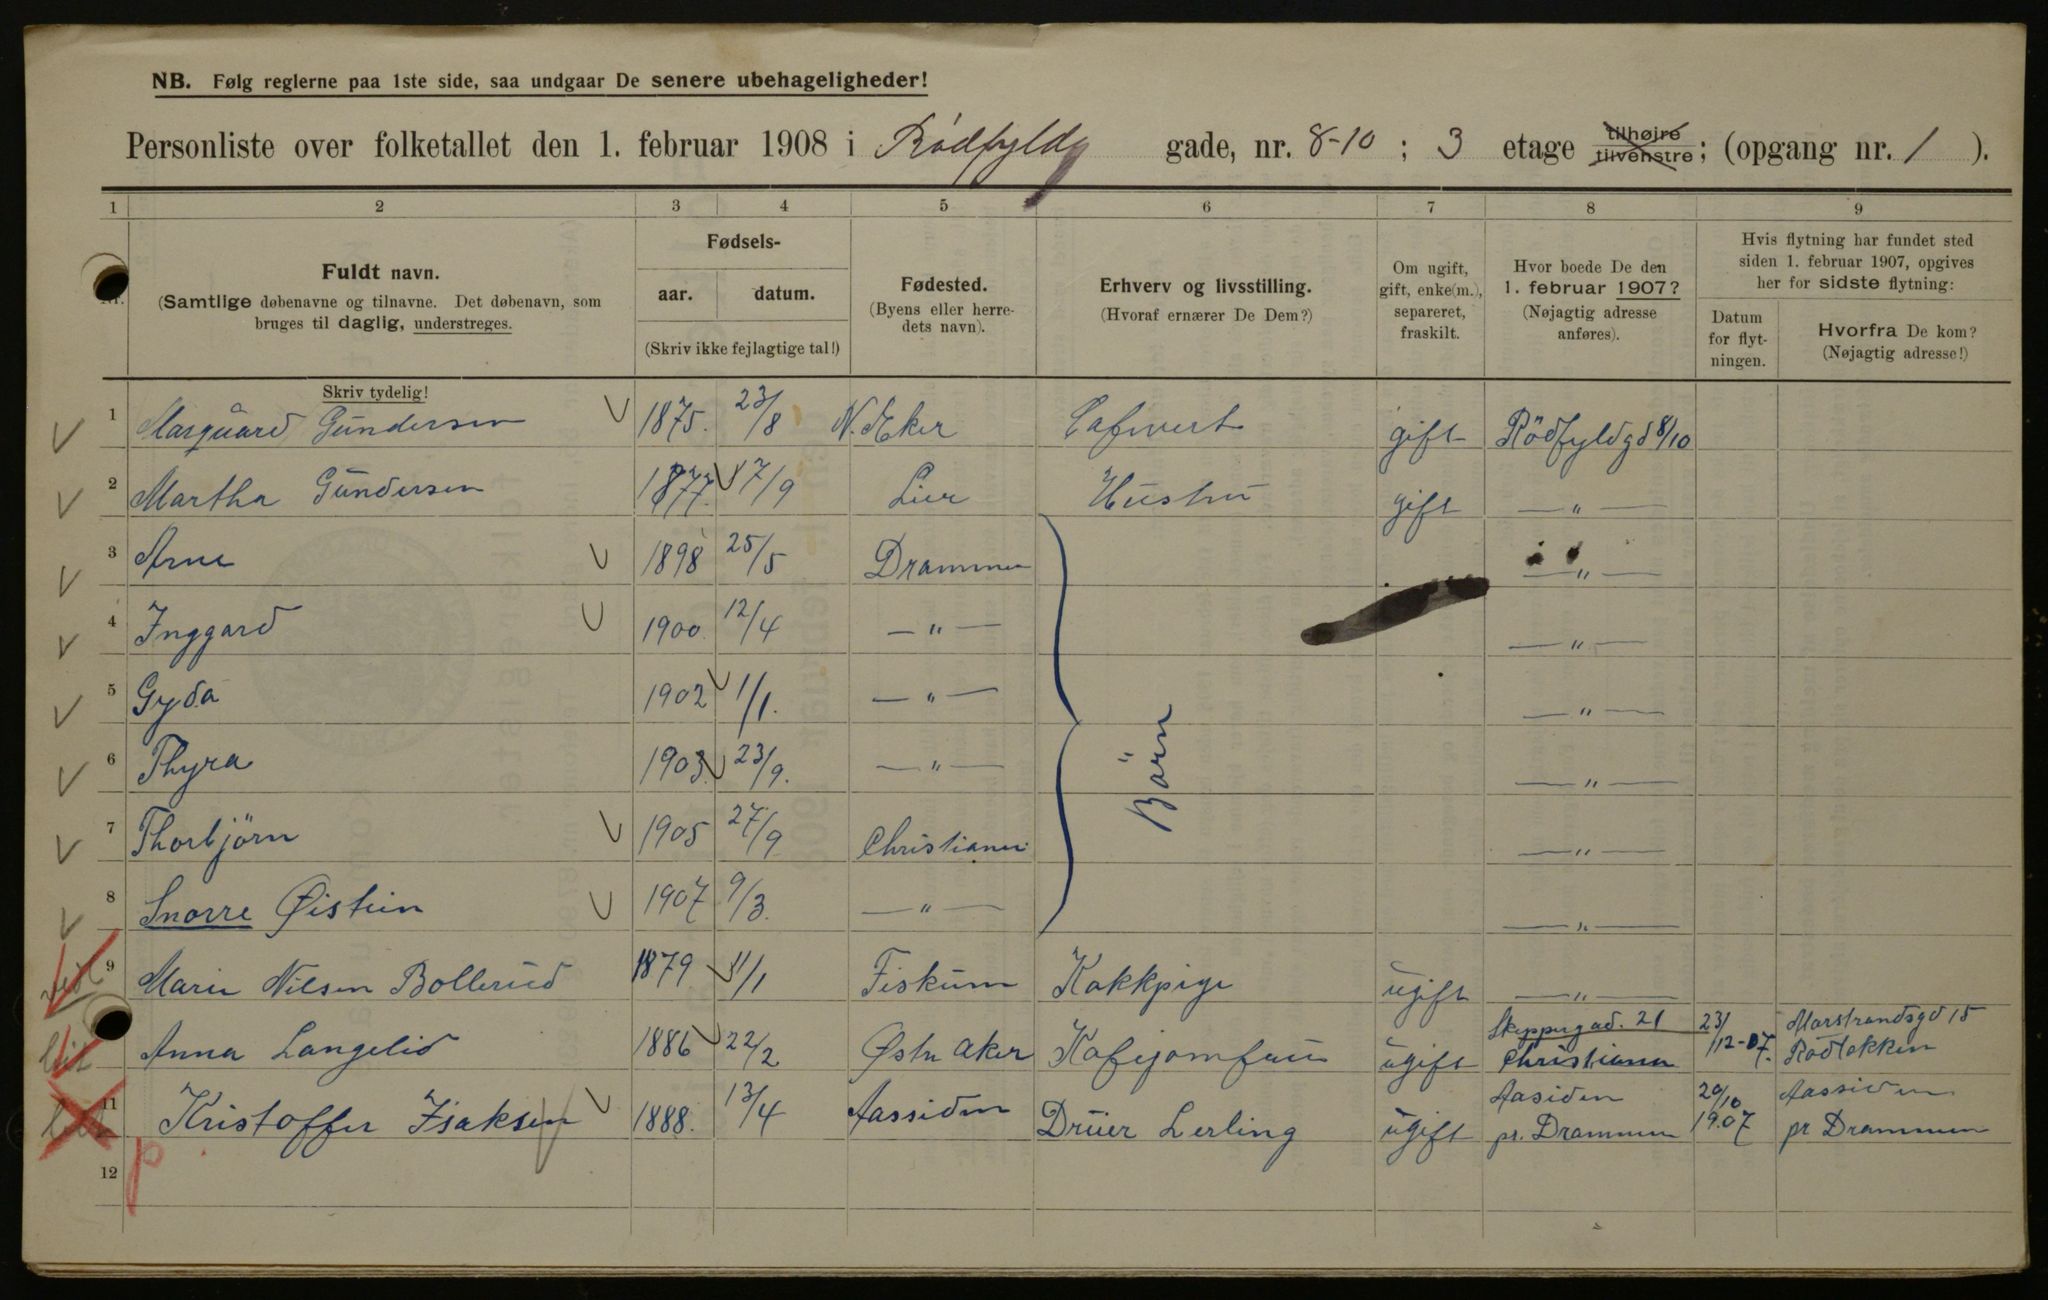 NB. Følg reglerne paa 1ste side, saa undgaar De senere ubehageligheder!
Personliste over folketallet den 1. februar 1908 i Rödfyldg gade, nr. 8-10 ; 3 etage tilhøire tilvenstre; (opgang nr. 1 ).
1 2 3 4 5 6 7 8 9
Fuldt navn.
(Samtlige døbenavne og tilnavne. Det døbenavn, som
bruges til daglig, understreges.
Skriv tydelig!
Fødsels-
aar. datum.
(Skriv ikke fejlagtige tal!)
Fødested.
(Byens eller herre-
dets navn).
Erhverv og livsstilling.
(Hvoraf ernærer De Dem?)
Om ugift,
gift, enke(m.),
separeret,
fraskilt.
Hvor boede De den
1. februar 1907?
(Nøjagtig adresse
anføres).
Hvis flytning har fundet sted
siden 1. februar 1907, opgives
her for sidste flytning:
Datum
for flyt-
ningen.
Hvorfra De kom?
(Nøjagtig adresse!)
1 Marguard Gundersen 1875. 23/8 N. Eker Cafevert gift Rödfyldgd 8/10
2 Martha Gundersen 1877. 17/9 Lier Hustru gift — " —
3 Arne 1898 25/5 Drammen — " —
4 Inggard 1900. 12/4 — " — — " —
5 Gyda 1902 1/1. — " — — " —
6 Thyra 1903. 23/9. — " — Börn — " —
7 Thorbjörn 1905 27/9 Christiania — " —
8 Snorre Øistein 1907 9/3. — " — — " —
9 Marie Nilsen Bollerud 1879 11/1 Fiskum Kokkpige ugift — " —
10 Anna Langelid 1886 22/2 Østre Aker Kafejomfru ugift Skippergad. 21 Christiania 23/12-07. Marstrandsgd 15 Rodelökken
11 Kristoffer Isaksen 1888. 13/4 Aassiden Drüer Lerling ugift Aasiden pr. Drammen 20/10 1907 Aassiden pr Drammen
12
p